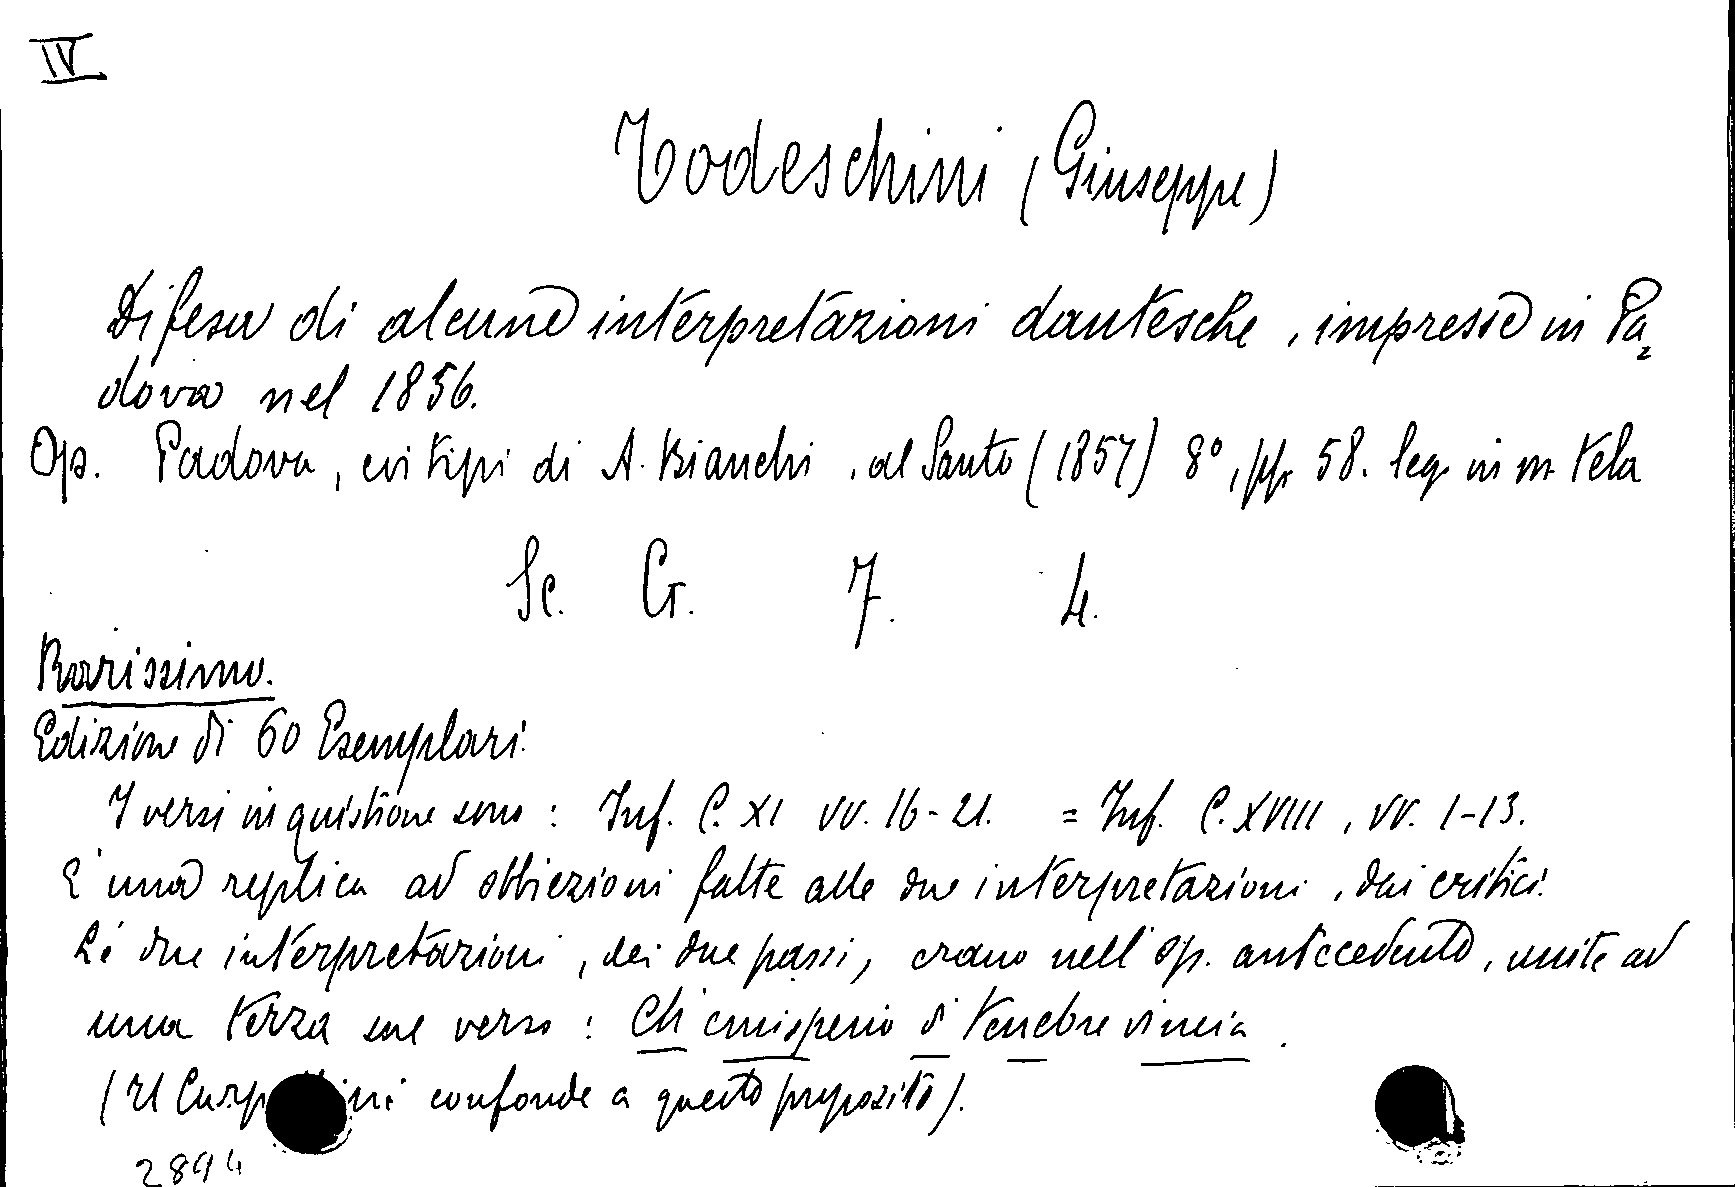 IV
Todeschini (Giuseppe)
Difesa di alcune interpretazioni dantesche, impresse in Pa=
dova nel 1856.
Op. Padova, coi tipi di A. Bianchi, al Santo (1857) 8°, pp. 58. leg. in m. tela
Sc. Cr. 7. 4.
Rarissimo.
Edizione di 60 Esemplari.
I versi in quistione sono: Inf. C. XI vv. 16-21. = Inf. C. XVIII, vv. 1-13.
È una replica ad obbiezioni fatte alle due interpretazioni, dai critici.
Le due interpretazioni, dei due passi, erano nell'op. antecedente, unite ad
una terza sul verso: Ch'emisperio di tenebre vincia.
(Il confonde a questo proposito).
2894